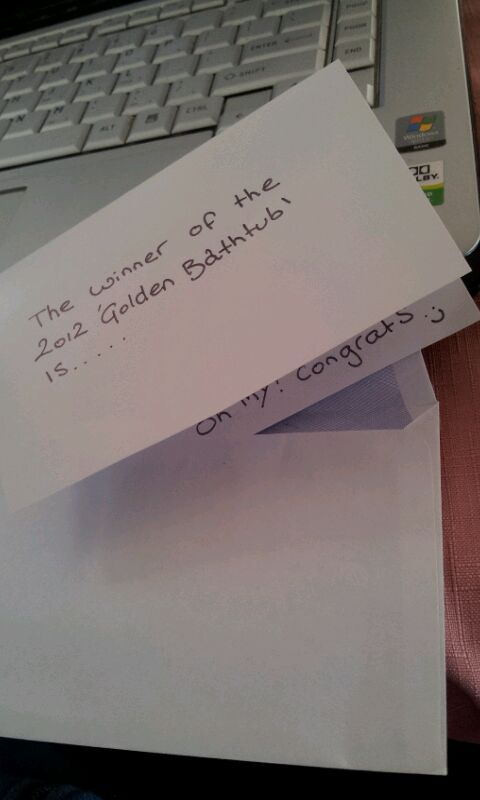 The winner of the
2012 'Golden Bathtub'
is.....
Oh my! Congrats :)
ENTER
SHIFT
ALT
CTRL
END
Windows